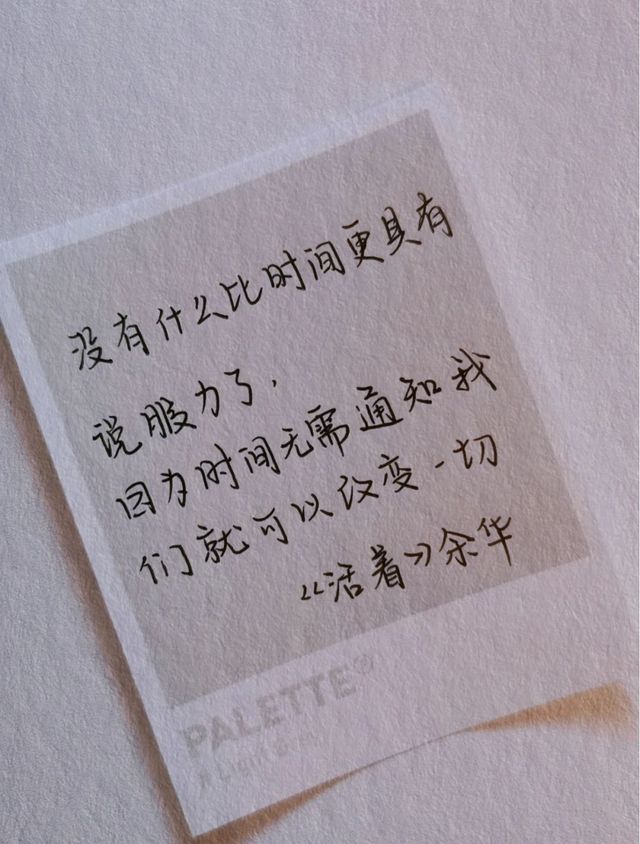 没有什么比时间更具有
说服力了,
因为时间无需通知我
们就可以改变一切
《活着》余华
PALETTE